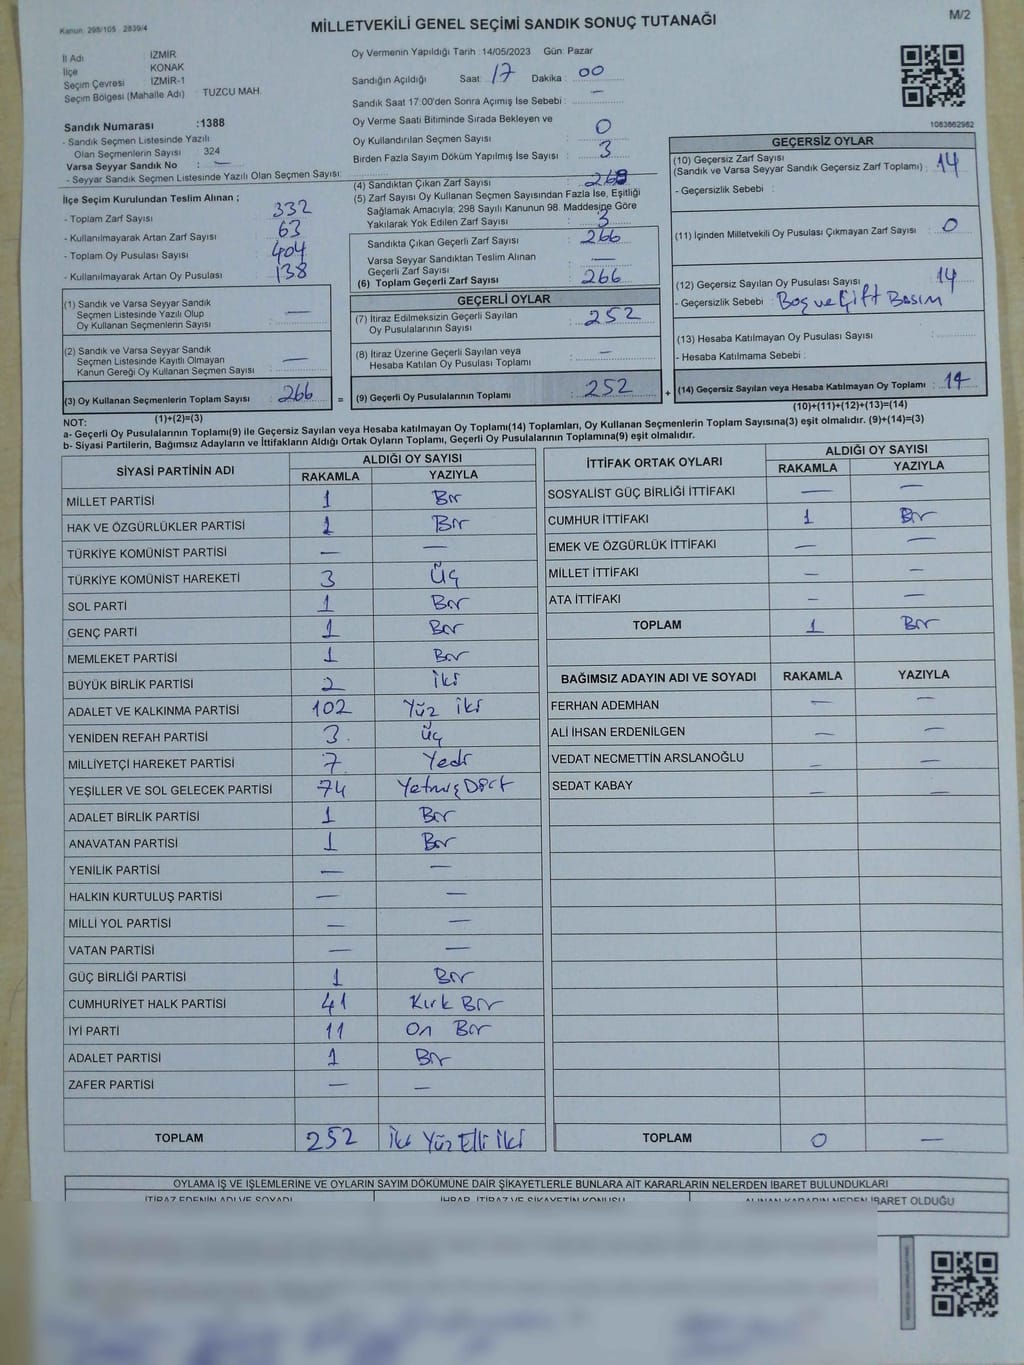 Kanun: 298/105 2839/4
MİLLETVEKİLİ GENEL SEÇİMİ SANDIK SONUÇ TUTANAĞI
M/2
İl Adı : İZMİR
İlçe : KONAK
Seçim Çevresi : İZMİR-1
Seçim Bölgesi (Mahalle Adı) : TUZCU MAH.
Oy Vermenin Yapıldığı Tarih :14/05/2023 Gün: Pazar
Sandığın Açıldığı Saat: 17 Dakika : 00
Sandık Saat 17:00'den Sonra Açımış İse Sebebi : —
Oy Verme Saati Bitiminde Sırada Bekleyen ve
Oy Kullandırılan Seçmen Sayısı : 0
Birden Fazla Sayım Döküm Yapılmış İse Sayısı : 3
1083862982
Sandık Numarası :1388
- Sandık Seçmen Listesinde Yazılı
Olan Seçmenlerin Sayısı : 324
Varsa Seyyar Sandık No : —
- Seyyar Sandık Seçmen Listesinde Yazılı Olan Seçmen Sayısı:
İlçe Seçim Kurulundan Teslim Alınan ;
- Toplam Zarf Sayısı : 332
- Kullanılmayarak Artan Zarf Sayısı : 63
- Toplam Oy Pusulası Sayısı : 404
- Kullanılmayarak Artan Oy Pusulası : 138
(1) Sandık ve Varsa Seyyar Sandık
Seçmen Listesinde Yazılı Olup
Oy Kullanan Seçmenlerin Sayısı : —
(2) Sandık ve Varsa Seyyar Sandık
Seçmen Listesinde Kayıtlı Olmayan
Kanun Gereği Oy Kullanan Seçmen Sayısı : —
(3) Oy Kullanan Seçmenlerin Toplam Sayısı : 266
(1)+(2)=(3)
(4) Sandıktan Çıkan Zarf Sayısı :
(5) Zarf Sayısı Oy Kullanan Seçmen Sayısından Fazla İse, Eşitliği
Sağlamak Amacıyla, 298 Sayılı Kanunun 98. Maddesine Göre
Yakılarak Yok Edilen Zarf Sayısı : 3
Sandıkta Çıkan Geçerli Zarf Sayısı : 266
Varsa Seyyar Sandıktan Teslim Alınan
Geçerli Zarf Sayısı : —
(6) Toplam Geçerli Zarf Sayısı : 266
GEÇERLİ OYLAR
(7) İtiraz Edilmeksizin Geçerli Sayılan
Oy Pusulalarının Sayısı : 252
(8) İtiraz Üzerine Geçerli Sayılan veya
Hesaba Katılan Oy Pusulası Toplamı : —
= (9) Geçerli Oy Pusulalarının Toplamı : 252 +
GEÇERSİZ OYLAR
(10) Geçersiz Zarf Sayısı
(Sandık ve Varsa Seyyar Sandık Geçersiz Zarf Toplamı) : 14
- Geçersizlik Sebebi :
(11) İçinden Milletvekili Oy Pusulası Çıkmayan Zarf Sayısı : 0
(12) Geçersiz Sayılan Oy Pusulası Sayısı : 14
- Geçersizlik Sebebi : Boş ve Çift Basım
(13) Hesaba Katılmayan Oy Pusulası Sayısı :
- Hesaba Katılmama Sebebi :
(14) Geçersiz Sayılan veya Hesaba Katılmayan Oy Toplamı : 14
(10)+(11)+(12)+(13)=(14)
NOT:
a- Geçerli Oy Pusulalarının Toplamı(9) ile Geçersiz Sayılan veya Hesaba katılmayan Oy Toplamı(14) Toplamları, Oy Kullanan Seçmenlerin Toplam Sayısına(3) eşit olmalıdır. (9)+(14)=(3)
b- Siyasi Partilerin, Bağımsız Adayların ve İttifakların Aldığı Ortak Oyların Toplamı, Geçerli Oy Pusulalarının Toplamına(9) eşit olmalıdır.
SİYASİ PARTİNİN ADI ALDIĞI OY SAYISI
RAKAMLA YAZIYLA
MİLLET PARTİSİ 1 Bir
HAK VE ÖZGÜRLÜKLER PARTİSİ 1 Bir
TÜRKİYE KOMÜNİST PARTİSİ — —
TÜRKİYE KOMÜNİST HAREKETİ 3 Üç
SOL PARTİ 1 Bir
GENÇ PARTİ 1 Bir
MEMLEKET PARTİSİ 1 Bir
BÜYÜK BİRLİK PARTİSİ 2 İki
ADALET VE KALKINMA PARTİSİ 102 Yüz iki
YENİDEN REFAH PARTİSİ 3 Üç
MİLLİYETÇİ HAREKET PARTİSİ 7 Yedi
YEŞİLLER VE SOL GELECEK PARTİSİ 74 Yetmiş Dört
ADALET BİRLİK PARTİSİ 1 Bir
ANAVATAN PARTİSİ 1 Bir
YENİLİK PARTİSİ — —
HALKIN KURTULUŞ PARTİSİ — —
MİLLİ YOL PARTİSİ — —
VATAN PARTİSİ — —
GÜÇ BİRLİĞİ PARTİSİ 1 Bir
CUMHURİYET HALK PARTİSİ 41 Kırk Bir
İYİ PARTİ 11 On Bir
ADALET PARTİSİ 1 Bir
ZAFER PARTİSİ — —
TOPLAM 252 İki Yüz Elli İki
İTTİFAK ORTAK OYLARI ALDIĞI OY SAYISI
RAKAMLA YAZIYLA
SOSYALİST GÜÇ BİRLİĞİ İTTİFAKI — —
CUMHUR İTTİFAKI 1 Bir
EMEK VE ÖZGÜRLÜK İTTİFAKI — —
MİLLET İTTİFAKI — —
ATA İTTİFAKI — —
TOPLAM 1 Bir
BAĞIMSIZ ADAYIN ADI VE SOYADI RAKAMLA YAZIYLA
FERHAN ADEMHAN — —
ALİ İHSAN ERDENİLGEN — —
VEDAT NECMETTİN ARSLANOĞLU — —
SEDAT KABAY — —
TOPLAM 0 —
OYLAMA İŞ VE İŞLEMLERİNE VE OYLARIN SAYIM DÖKÜMÜNE DAİR ŞİKAYETLERLE BUNLARA AİT KARARLARIN NELERDEN İBARET BULUNDUKLARI
İTİRAZ EDENİN ADI VE SOYADI İHBAR, İTİRAZ VE ŞİKAYETİN KONUSU ALINAN KARARIN NEDEN İBARET OLDUĞU